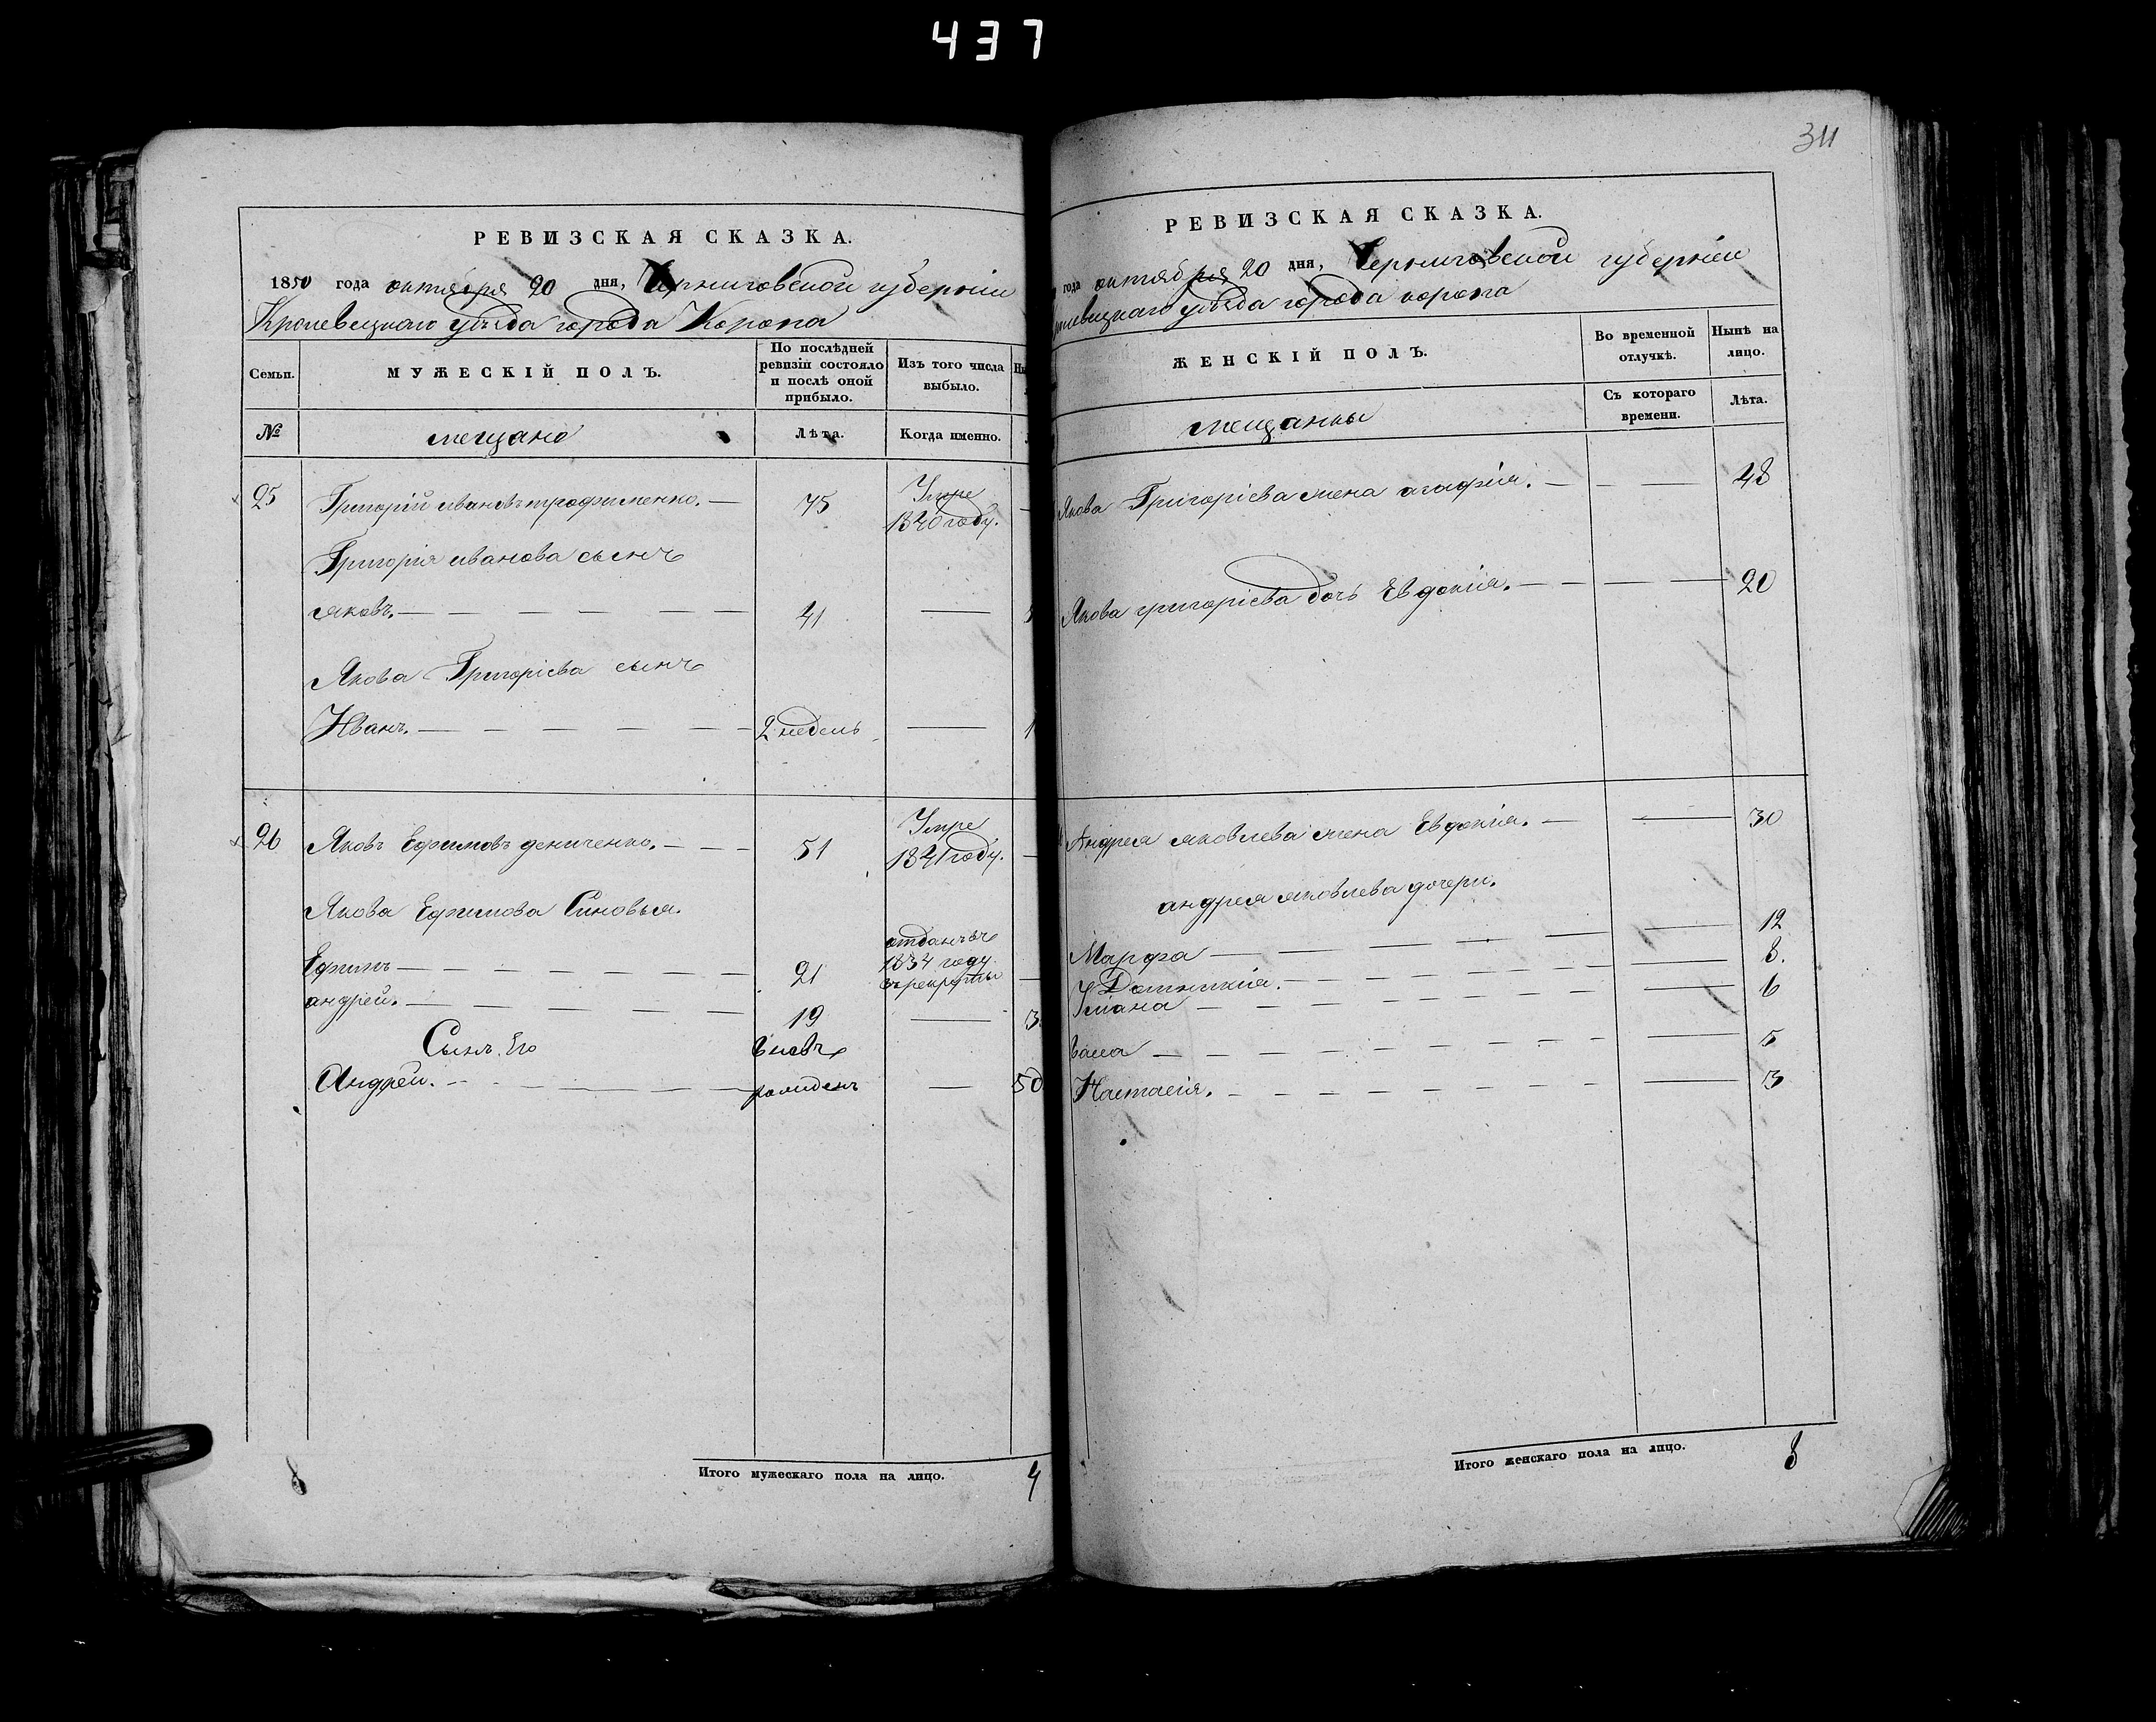 437
РЕВИЗСКАЯ СКАЗКА.
1850 года октября 20 дня, Черниговской губернии
Кролевецкаго уѣзда города Коропа
Семьи.
МУЖЕСКІЙ ПОЛЪ.
По послѣдней
ревизіи состояло
и послѣ оной
прибыло.
Изъ того числа
выбыло.
№
мещане
Лѣта.
Когда именно.
25
Григорій ивановъ трофименко. —
75
Умре
1840 году.
Григорія иванова сынъ
яковъ. —
41
Якова Григоріева сынъ
Иванъ. —
2 недель
26
Яковъ Ефимовъ дениченко. —
51
Умре
1841 году.
Якова Ефимова Синовья.
Ефимъ —
21
отданъ въ
1834 году
въ рекруты
андрей. —
19
Сынъ Его
вновъ
Андрей. —
рожденъ
50
Итого мужескаго пола на лицо. 4
8
311
РЕВИЗСКАЯ СКАЗКА.
года октября 20 дня, Черниговской губерніи
уѣзда города коропа
ЖЕНСКІЙ ПОЛЪ.
Во временной
отлучкѣ.
Нынѣ на
лицо.
Съ котораго
времени.
Лѣта.
мещанки
Якова Григоріева жена агафія. —
48
Якова григоріева дочь Евдокія. —
20
Андрея яковлева жена Евдокія. —
30
андрея яковлева дочери.
Марфа —
12
8.
Уліана —
6
5
Настасія. —
3
Итого женскаго пола на лицо. 8